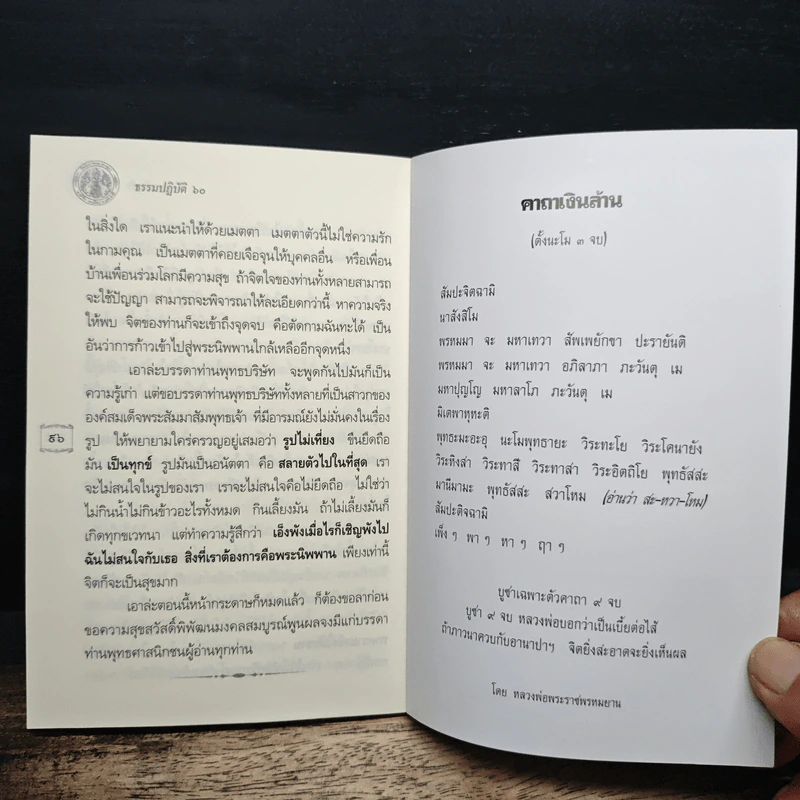 ธรรมปฏิบัติ ๖๐
ในสิ่งใด เราแนะนำให้ด้วยเมตตา เมตตาตัวนี้ไม่ใช่ความรัก
ในกามคุณ เป็นเมตตาที่คอยเจือจุนให้บุคคลอื่น หรือเพื่อน
บ้านเพื่อนร่วมโลกมีความสุข ถ้าจิตใจของท่านทั้งหลายสามารถ
จะใช้ปัญญา สามารถจะพิจารณาให้ละเอียดกว่านี้ หาความจริง
ให้พบ จิตของท่านก็จะเข้าถึงจุดจบ คือตัดกามฉันทะได้ เป็น
อันว่าการก้าวเข้าไปสู่พระนิพพานใกล้เหลืออีกจุดหนึ่ง
เอาล่ะบรรดาท่านพุทธบริษัท จะพูดกันไปมันก็เป็น
ความรู้เก่า แต่ขอบรรดาท่านพุทธบริษัททั้งหลายที่เป็นสาวกของ
องค์สมเด็จพระสัมมาสัมพุทธเจ้า ที่มีอารมณ์ยังไม่มั่นคงในเรื่อง
รูป ให้พยายามใคร่ครวญอยู่เสมอว่า รูปไม่เที่ยง ขืนยึดถือ
มัน เป็นทุกข์ รูปมันเป็นอนัตตา คือ สลายตัวไปในที่สุด เรา
จะไม่สนใจในรูปของเรา เราจะไม่สนใจคือไม่ยึดถือ ไม่ใช่ว่า
ไม่กินน้ำไม่กินข้าวอะไรทั้งหมด กินเลี้ยงมัน ถ้าไม่เลี้ยงมันก็
เกิดทุกขเวทนา แต่ทำความรู้สึกว่า เอ็งพังเมื่อไรก็เชิญพังไป
ฉันไม่สนใจกับเธอ สิ่งที่เราต้องการคือพระนิพพาน เพียงเท่านี้
จิตก็จะเป็นสุขมาก
เอาล่ะตอนนี้หน้ากระดาษก็หมดแล้ว ก็ต้องขอลาก่อน
ขอความสุขสวัสดิ์พิพัฒนมงคลสมบูรณ์พูนผลจงมีแก่บรรดา
ท่านพุทธศาสนิกชนผู้อ่านทุกท่าน
๙๖
คาถาเงินล้าน
(ตั้งนะโม ๓ จบ)
สัมปะจิตฉามิ
นาสังสิโม
พรหมมา จะ มหาเทวา สัพเพยักขา ปะรายันติ
พรหมมา จะ มหาเทวา อภิลาภา ภะวันตุ เม
มหาปุญโญ มหาลาโภ ภะวันตุ เม
มิเตพาหุหะติ
พุทธะมะอะอุ นะโมพุทธายะ วิระทะโย วิระโคนายัง
วิระหิงสา วิระทาสี วิระทาสา วิระอิตถิโย พุทธัสสะ
มานีมามะ พุทธัสสะ สวาโหม (อ่านว่า สะ-หวา-โหม)
สัมปะติจฉามิ
เพ็ง ๆ พา ๆ หา ๆ ฤา ๆ
บูชาเฉพาะตัวคาถา ๙ จบ
บูชา ๙ จบ หลวงพ่อบอกว่าเป็นเบี้ยต่อไส้
ถ้าภาวนาควบกับอานาปาฯ จิตยิ่งสะอาดจะยิ่งเห็นผล
โดย หลวงพ่อพระราชพรหมยาน